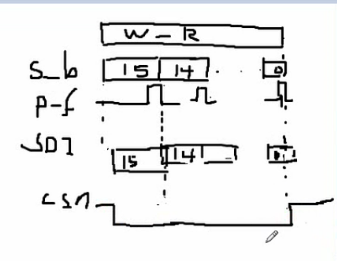 W - R
S_b 15 14 . . . 0
P-f
SDI 15 14 0
CSN